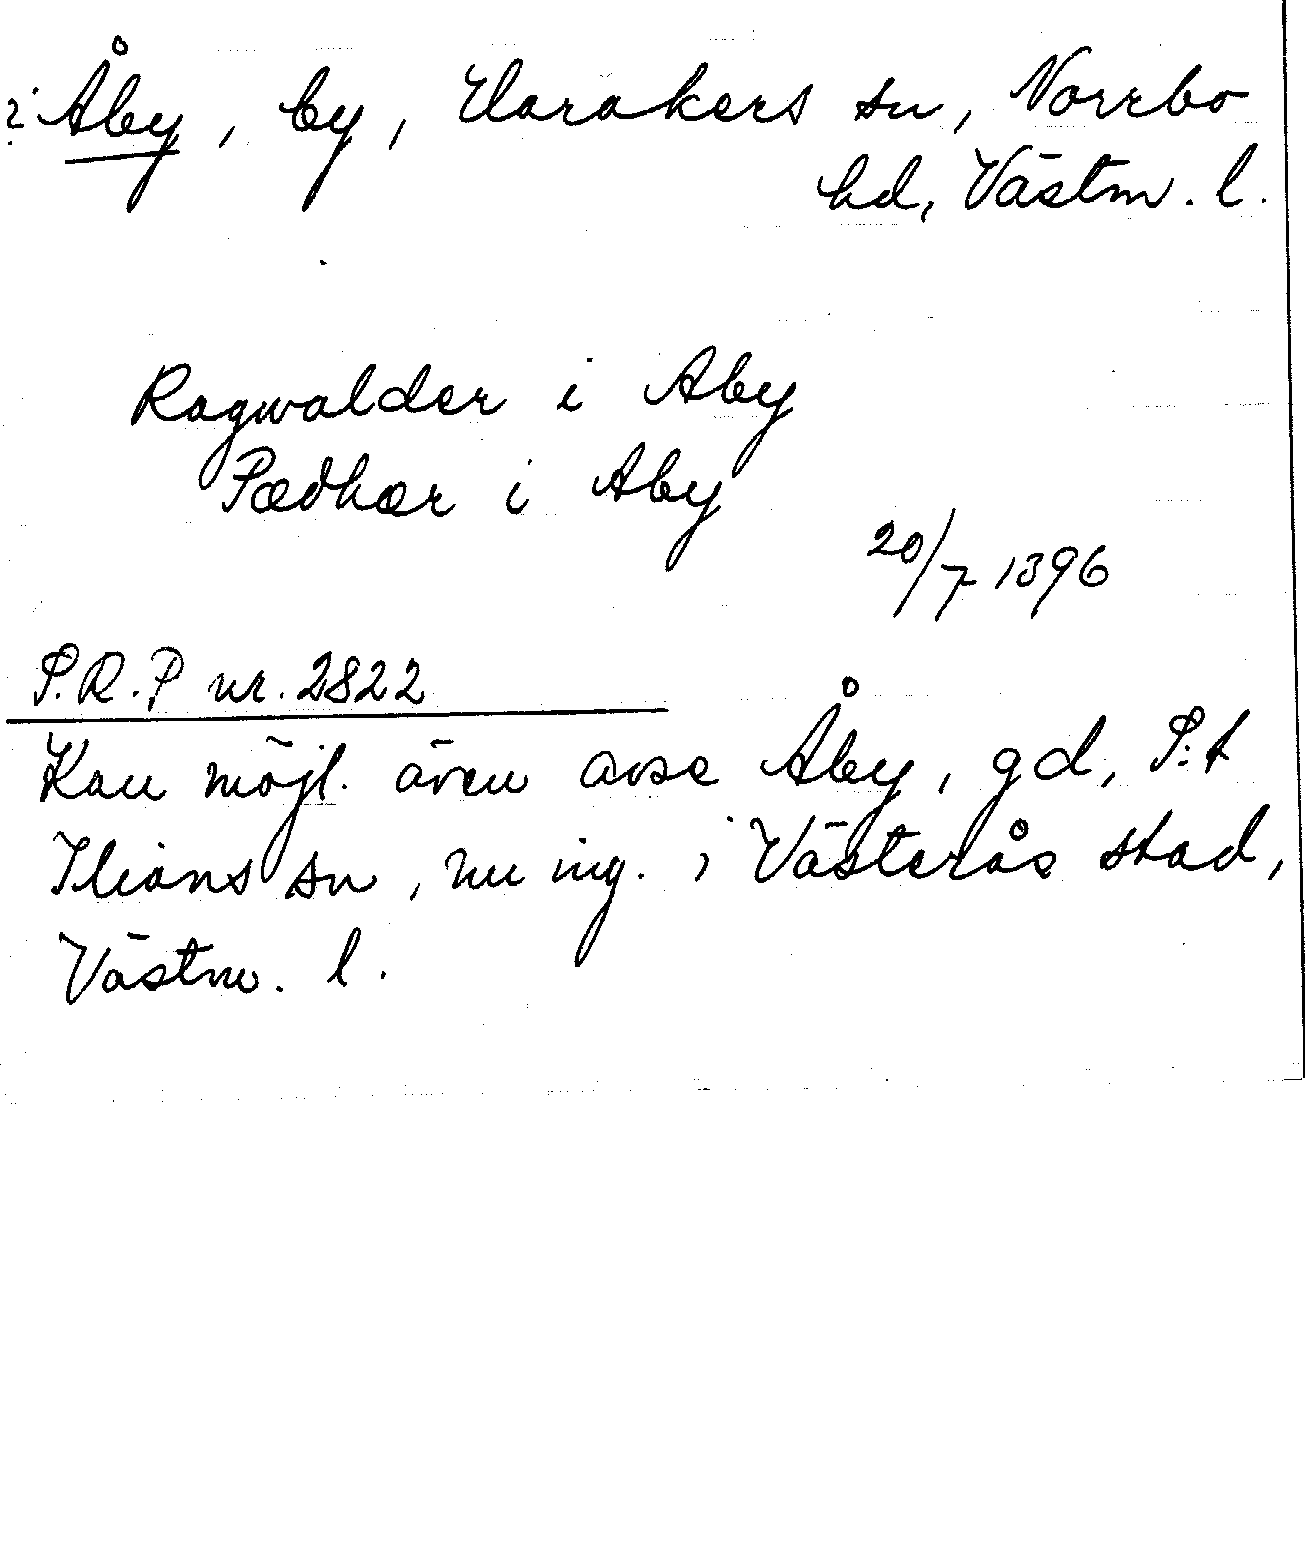 ? Åby, by, Harakers sn, Norrbo
hd, Västm. l.
Ragwalder i Aby
Pædhær i Aby
20/7 1396
S.R.P nr. 2822
Kan möjl. även avse Åby, gd, S:t
Ilians sn, nu ing. i Västerås stad,
Västm. l.